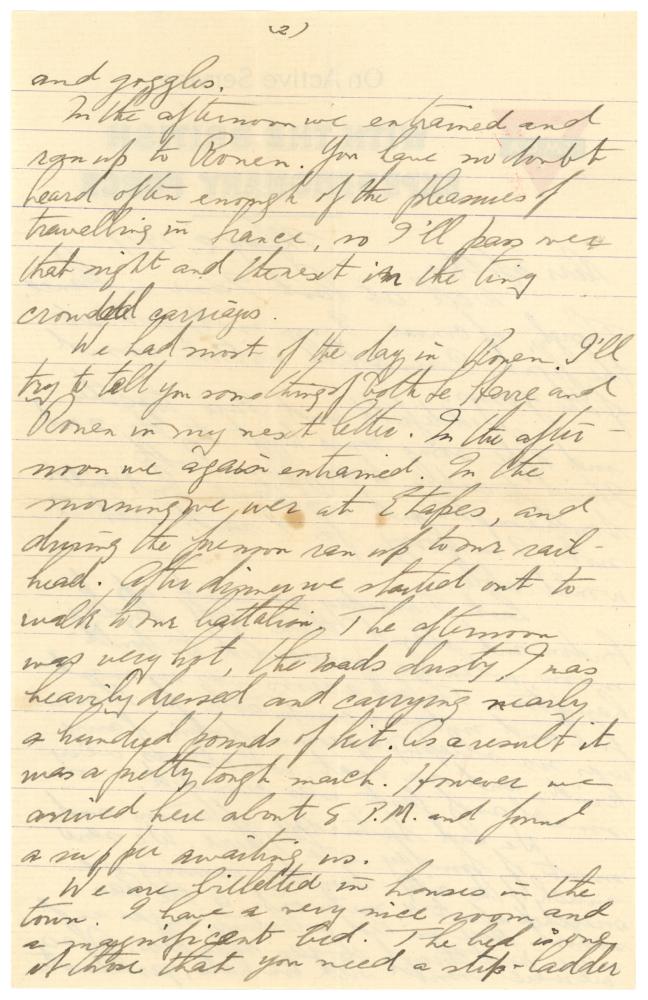 (2)
and goggles.
In the afternoon we entrained and
ran up to Rouen. You have no doubt
heard often enough of the pleasures of
travelling in France, so I'll pass over
that night and the next in the tiny
crowded carriages.
We had most of the day in Rouen. I'll
try to tell you something of both Le Havre and
Rouen in my next letter. In the after-
noon we again entrained. In the
morning we wer at Etapes, and
during the forenoon ran up to our rail-
head. After dinner we started out to
walk to our battalion. The afternoon
was very hot, the roads dusty, I was
heavily dressed and carrying nearly
a hundred pounds of kit. As a result it
was a pretty tough march. However we
arrived here about P.M. and found
a supper awaiting us.
We are billetted in houses in the
town. I have a very nice room and
a magnificent bed. The bed is one
of those that you need a step-ladder